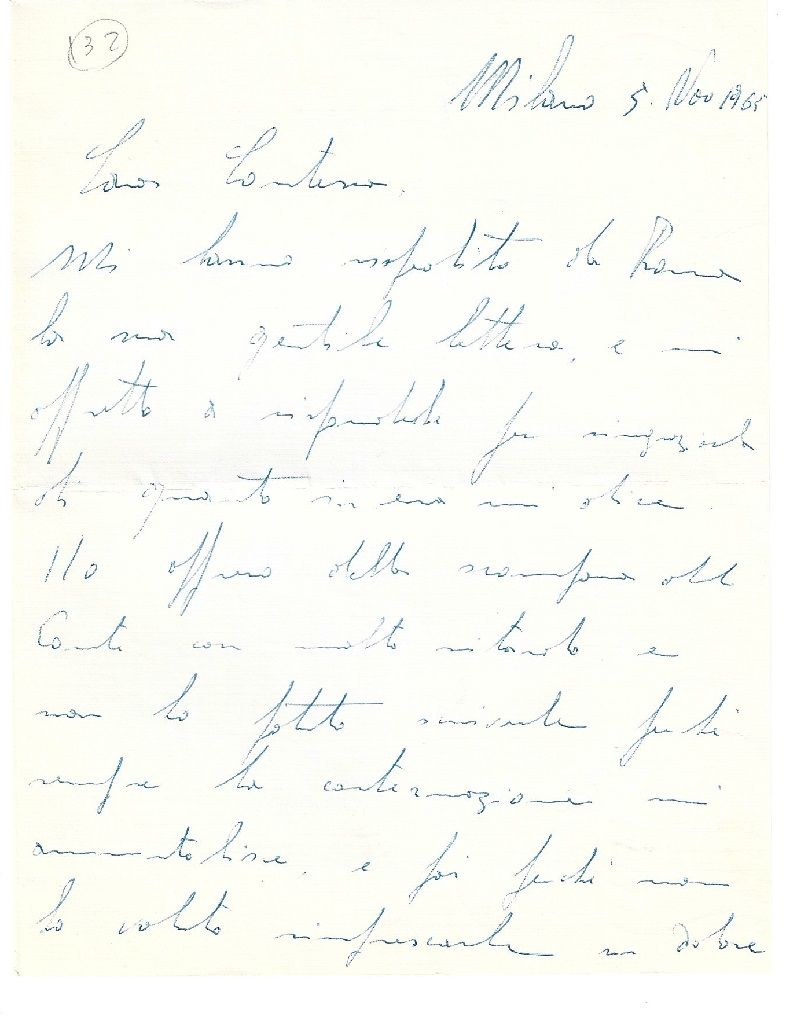 132
Milano 5. Nov 1965
Cara Contessa,
Mi hanno rispedito da Roma
la sua gentile lettera, e mi
affretto a risponderle per ringraziarla
di quanto in essa mi dice.
Ho appreso della scomparsa del
Conte con molto ritardo e
non ho potuto scriverle perché
sempre la costernazione mi
ammutolisce, e poi perché non
ho voluto rinfrescarle un dolore